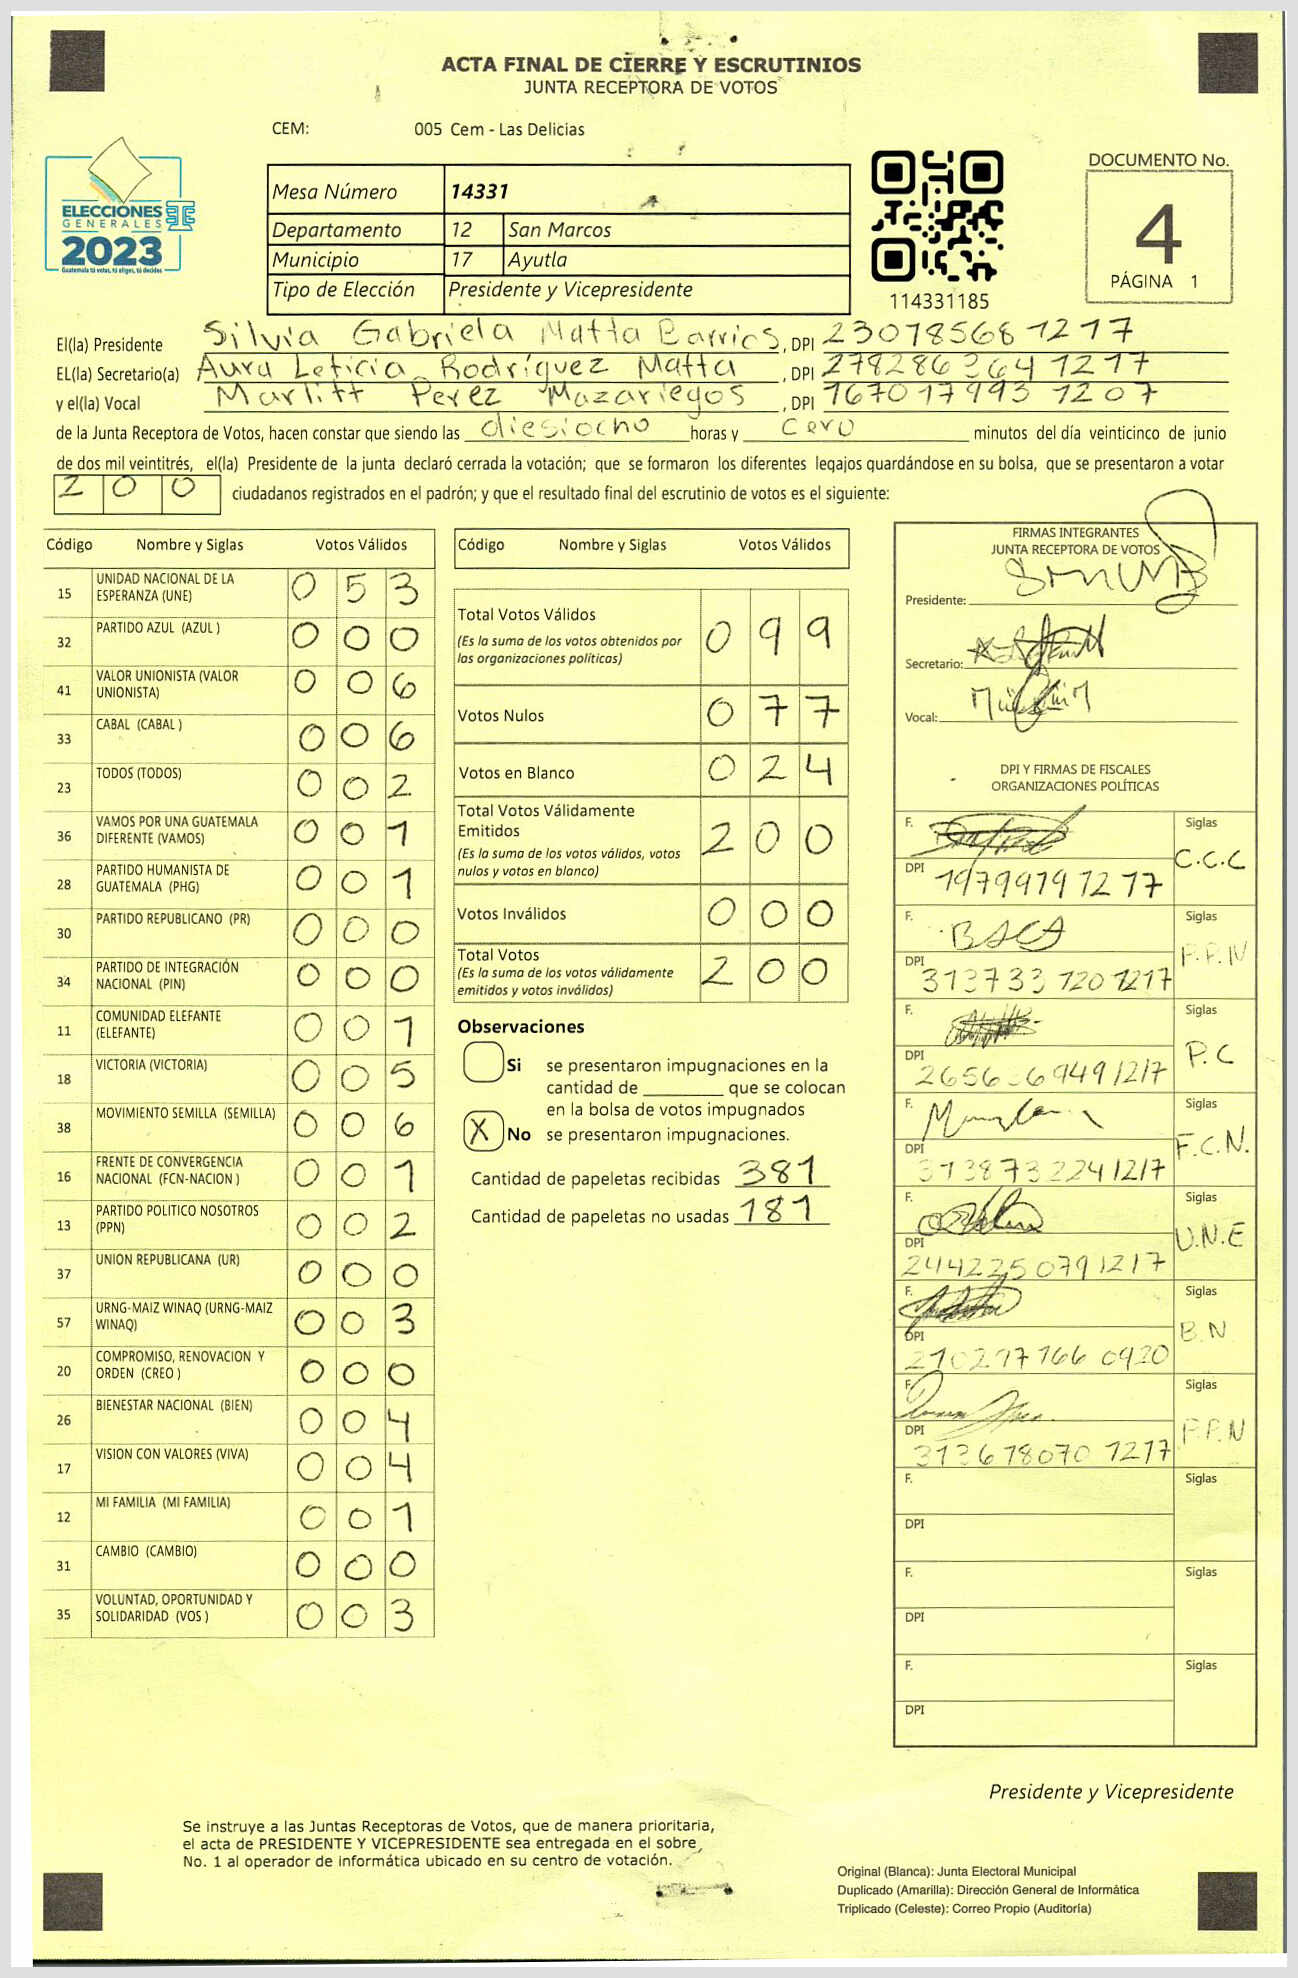 ACTA FINAL DE CIERRE Y ESCRUTINIOS
JUNTA RECEPTORA DE VOTOS
CEM: 005 Cem - Las Delicias
ELECCIONES
GENERALES
2023
Guatemala tú votas, tú eliges, tú decides
Mesa Número 14331
Departamento 12 San Marcos
Municipio 17 Ayutla
Tipo de Elección Presidente y Vicepresidente
114331185
DOCUMENTO No.
4
PÁGINA 1
El(la) Presidente Silvia Gabriela Matta Barrios, DPI 230785681217
EL(la) Secretario(a) Aura Leticia Rodríguez Matta, DPI 2782863641217
y el(la) Vocal Marlitt Perez Mazariegos, DPI 1670179931207
de la Junta Receptora de Votos, hacen constar que siendo las diesiocho horas y cero minutos del día veinticinco de junio
de dos mil veintitrés, el(la) Presidente de la junta declaró cerrada la votación; que se formaron los diferentes legajos guardándose en su bolsa, que se presentaron a votar
200 ciudadanos registrados en el padrón; y que el resultado final del escrutinio de votos es el siguiente:
Código Nombre y Siglas Votos Válidos
15 UNIDAD NACIONAL DE LA ESPERANZA (UNE) 053
32 PARTIDO AZUL (AZUL ) 000
41 VALOR UNIONISTA (VALOR UNIONISTA) 006
33 CABAL (CABAL ) 006
23 TODOS (TODOS) 002
36 VAMOS POR UNA GUATEMALA DIFERENTE (VAMOS) 001
28 PARTIDO HUMANISTA DE GUATEMALA (PHG) 001
30 PARTIDO REPUBLICANO (PR) 000
34 PARTIDO DE INTEGRACIÓN NACIONAL (PIN) 000
11 COMUNIDAD ELEFANTE (ELEFANTE) 001
18 VICTORIA (VICTORIA) 005
38 MOVIMIENTO SEMILLA (SEMILLA) 006
16 FRENTE DE CONVERGENCIA NACIONAL (FCN-NACION ) 001
13 PARTIDO POLITICO NOSOTROS (PPN) 002
37 UNION REPUBLICANA (UR) 000
57 URNG-MAIZ WINAQ (URNG-MAIZ WINAQ) 003
20 COMPROMISO, RENOVACION Y ORDEN (CREO ) 000
26 BIENESTAR NACIONAL (BIEN) 004
17 VISION CON VALORES (VIVA) 004
12 MI FAMILIA (MI FAMILIA) 001
31 CAMBIO (CAMBIO) 000
35 VOLUNTAD, OPORTUNIDAD Y SOLIDARIDAD (VOS ) 003
Código Nombre y Siglas Votos Válidos
Total Votos Válidos 099
(Es la suma de los votos obtenidos por
las organizaciones políticas)
Votos Nulos 077
Votos en Blanco 024
Total Votos Válidamente
Emitidos 200
(Es la suma de los votos válidos, votos
nulos y votos en blanco)
Votos Inválidos 000
Total Votos 200
(Es la suma de los votos válidamente
emitidos y votos inválidos)
Observaciones
Si se presentaron impugnaciones en la
cantidad de ________ que se colocan
en la bolsa de votos impugnados
X No se presentaron impugnaciones.
Cantidad de papeletas recibidas 381
Cantidad de papeletas no usadas 181
FIRMAS INTEGRANTES
JUNTA RECEPTORA DE VOTOS
Presidente:
Secretario:
Vocal:
DPI Y FIRMAS DE FISCALES
ORGANIZACIONES POLÍTICAS
F. Siglas
C.C.C
DPI 1979979 1217
F. Siglas
DPI 313733 120 1217
F. Siglas
P.C
DPI
F. Siglas
F.C.N.
DPI 3138732241217
F. Siglas
U.N.E
DPI 2442250791217
F. Siglas
B.N
DPI 210217166 0920
F. Siglas
P.P.N
DPI 313618070 1217
F. Siglas
DPI
F. Siglas
DPI
F. Siglas
DPI
Presidente y Vicepresidente
Se instruye a las Juntas Receptoras de Votos, que de manera prioritaria,
el acta de PRESIDENTE Y VICEPRESIDENTE sea entregada en el sobre
No. 1 al operador de informática ubicado en su centro de votación.
Original (Blanca): Junta Electoral Municipal
Duplicado (Amarilla): Dirección General de Informática
Triplicado (Celeste): Correo Propio (Auditoría)